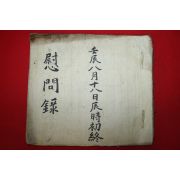 壬辰八月十八日辰時初終
慰問錄